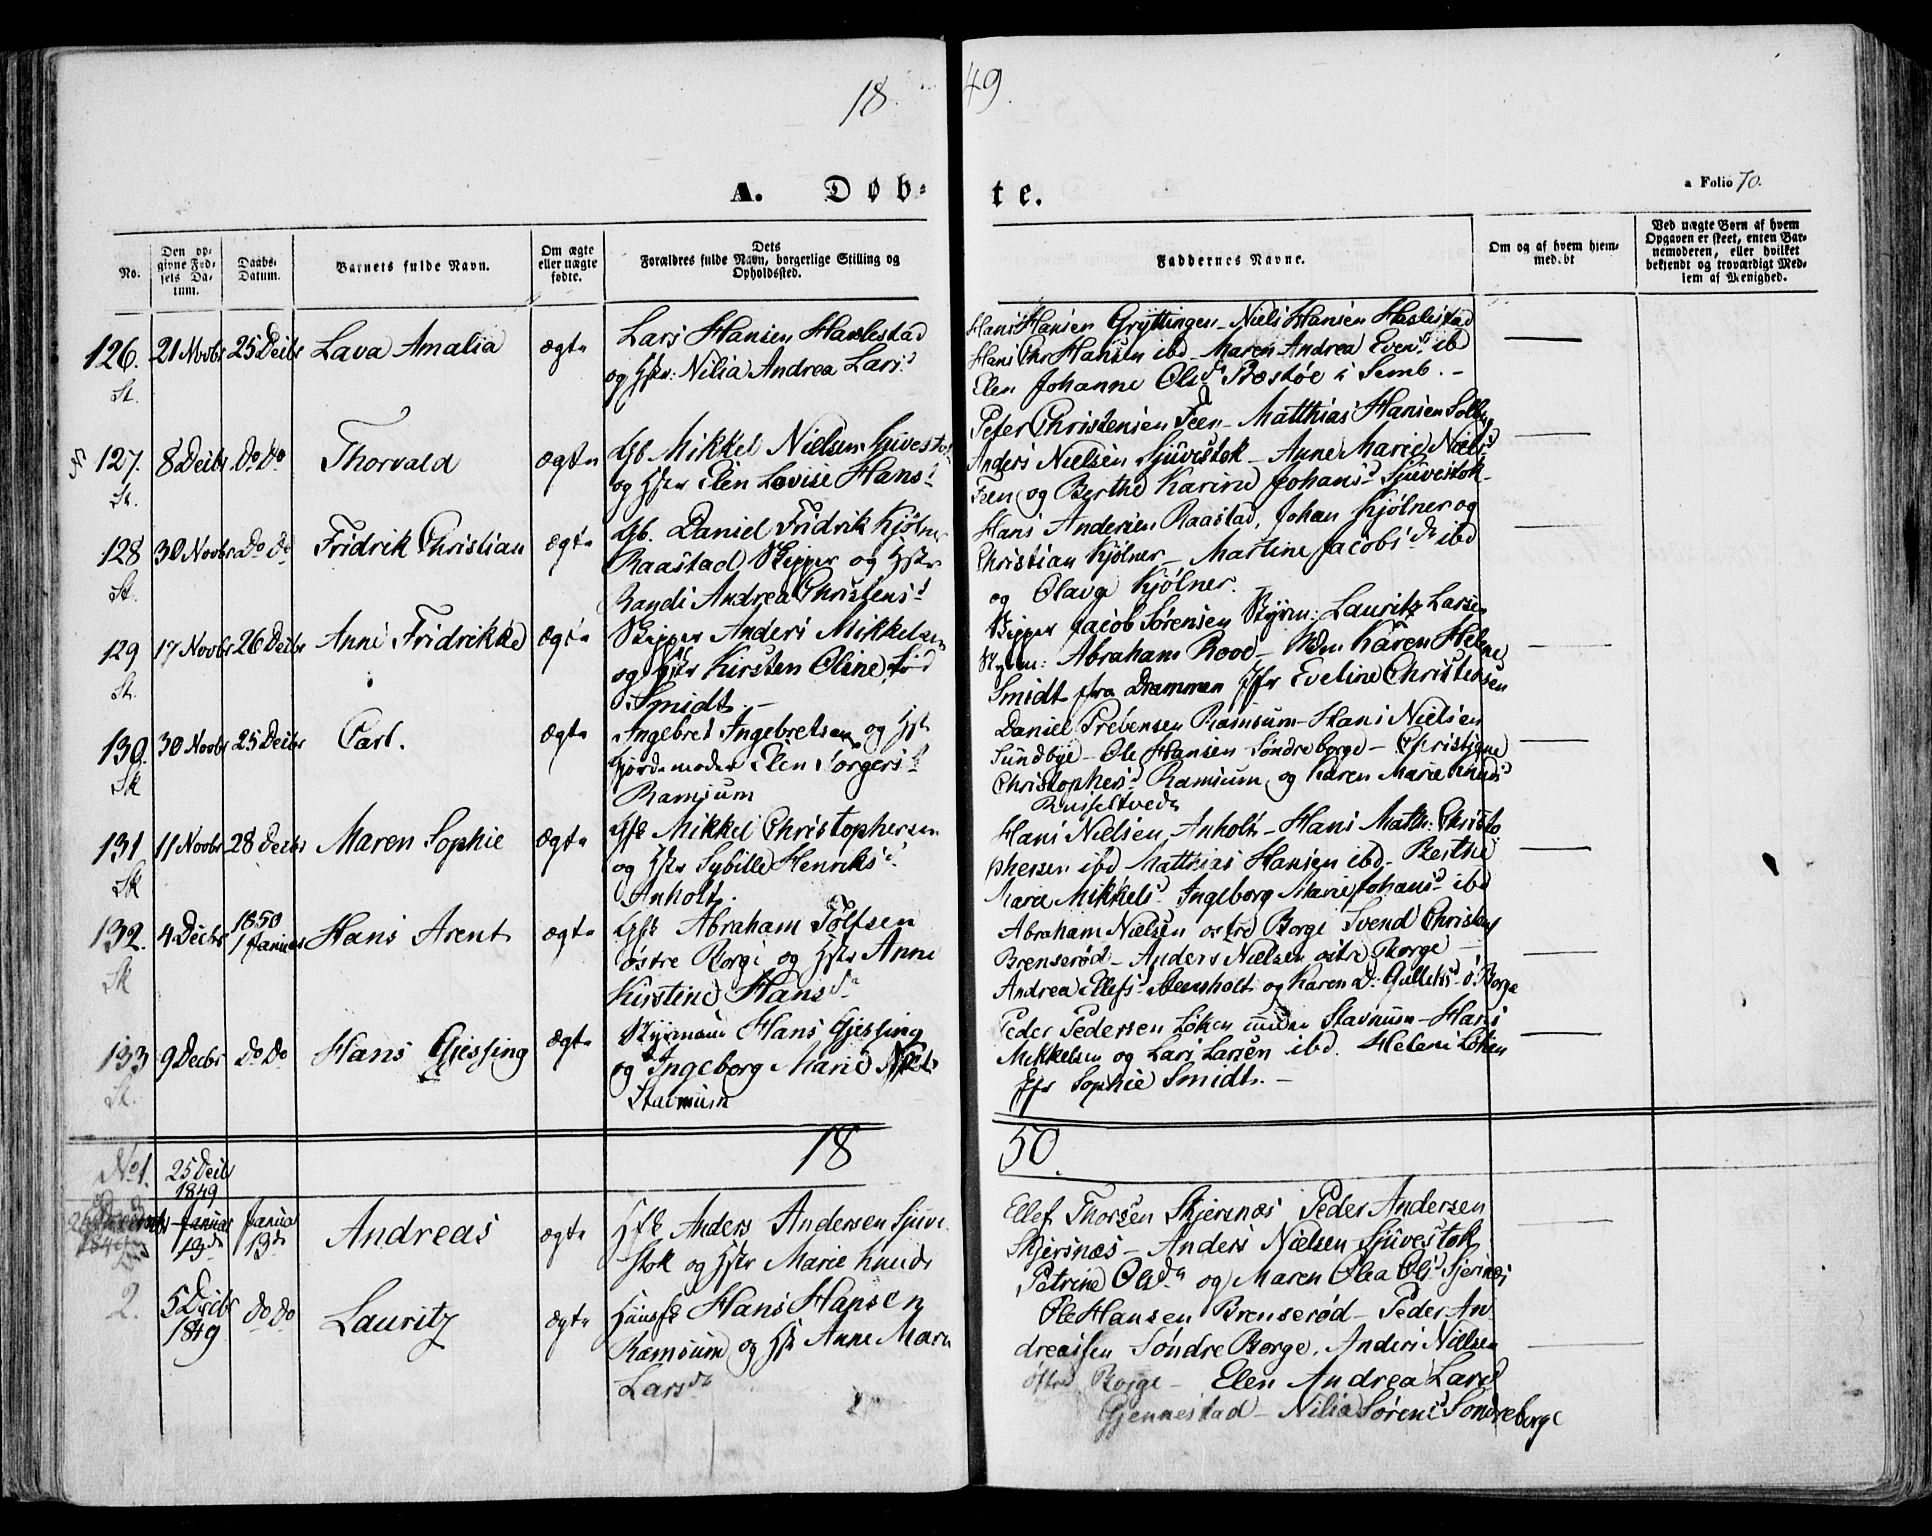 18 49.
A. Døb- te.
a Folio 70.
No.
Den op-
givne Fød-
sels Da-
tum.
Daabs-
Datum.
Barnets fulde Navn.
Om ægte
eller uægte
fødte.
Dets
Forældres fulde Navn, borgerlige Stilling og
Opholdssted.
Faddernes Navne.
Om og af hvem hjem-
med.bt
Ved uægte Børn af hvem
Opgaven er skeet, enten Bar-
nemoderen, eller hvilket
bekjendt og troværdigt Med-
lem af Menighed.
126. 21 Novbr 25 Decbr Lava Amalia ægte
St.
Lars Hansen Haslestad
og Hstr: Nilia Andrea Lars d
Hans Hansen Gryttingen - Niels Hansen Haslestad
Hans Chr Hansen ibd - Maren Andrea Evens d ibd
Elen Johanne Ols d Bæstøe i Semb. -
127. 8 Decbr Do Do Thorvald ægte
St.
Gb Mikkel Nielsen Sjuvestok
og Hstr Elen Lovise Hans d
Peter Christensen Feen - Matthias Hansen Solby
Anders Nielsen Sjuvestok - Anne Marie Niels d
Feen og Berthe Karine Johans d Sjuvestok -
128 30 Novbr Do Do Fridrik Christian ægte
St.
Gb. Daniel Fridrik Kjølner
Raastad Skipper og Hstr
Randi Andrea Christens d
Hans Andersen Raastad, Johan Kjølner og
Christian Kjølner - Martine Jacobs dr ibd
og Olava Kjølner.
129 17 Novbr 26 Decbr Anne Fridrikke ægte
St.
Skipper Anders Mikkelsen
og Hstr Kirsten Oline fød
Smidt. -
Skipper Jacob Sørensen Styrm: Lauritz Larsen
Styrm: Abraham Rood - Mdm Karen Helene
Smidt fra Drammen Jfr Eveline Christensen
130. 30 Novbr 25 Decbr Carl. ægte
Sk
Ingebret Ingebretsen og Hstr
Gjordemoder Elen Jørgens d
Ramsum
Daniel Prebensen Ramsum - Hans Nielsen
Sundbye - Ole Hansen Søndre Borge - Christiane
Christophers d Ramsum og Karen Marie Knuds d
131 11 Novbr 28 Decbr Maren Sophie ægte
Sk
Hfk Mikkel Christophersen
og Hstr Sybille Henriks d
Anholt.
Hans Nielsen Anholt - Hans Math: Christo
phersen ibd Matthias Hansen ibd - Berthe
Marie Mikkels d Ingeborg Marie Johans d ibd
132. 4 Decbr 1850 1 Januar Hans Arent ægte
Sk
Hfk Abraham Tolfsen
østre Borge og Hstr Anne
Kirstine Hans dr
Abraham Nielsen østre Borge Svend Christens
Brenserød - Anders Nielsen østre Borge -
Andrea Ellefs d og Karen D: Gulliks d ø: Borge
133 9 Decbr Do Do Hans Gjessing ægte
St.
Styrmand Hans Gjessing
og Ingeborg Marie
Stavnum
Peder Pedersen Løken under Stavnum - Hans
Mikkelsen og Lars Larsen ibd. Helene Løken
Jfr Sophie Smidt. -
18 50.
No 1. 25 Decbr 1849
Januar 13 de Januar 13 de Andreas ægte
Hfk Anders Andersen Sjuve
stok og Hstr Marie Knuds
Ellef Thorsen Skjersnæs Peder Andersen
Skjersnæs - Anders Nielsen Sjuvestok
Petrine Ols dr og Maren Olea Ols d Skjersnæs
2. 5 Decbr 1849 Do Do Lauritz ægte
Huusfk Hans Hansen
Ramsum og Hstr Anne Marie
Lars dr
Ole Hansen Brenserød - Peder An
dreassen Søndre Borge. Anders Nielsen
østre Borge - Elen Andrea Lars d
Gjennestad - Nilia Sørens d Søndreborge